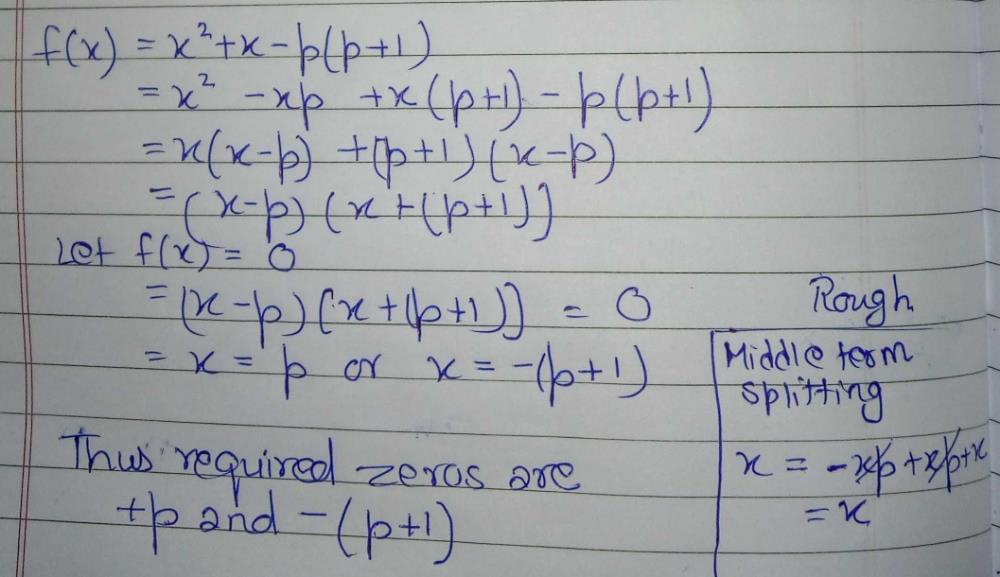 f(x) = x²+x-p(p+1)
= x² -xp +x(p+1) - p(p+1)
= x(x-p) +(p+1)(x-p)
= (x-p)(x+(p+1)]
Let f(x) = 0
= (x-p)[x+(p+1)] = 0
= x = p or x = -(p+1)
Thus required zeros are
+p and -(p+1)
Rough
Middle term
splitting
x = -xp+xp+x
= x